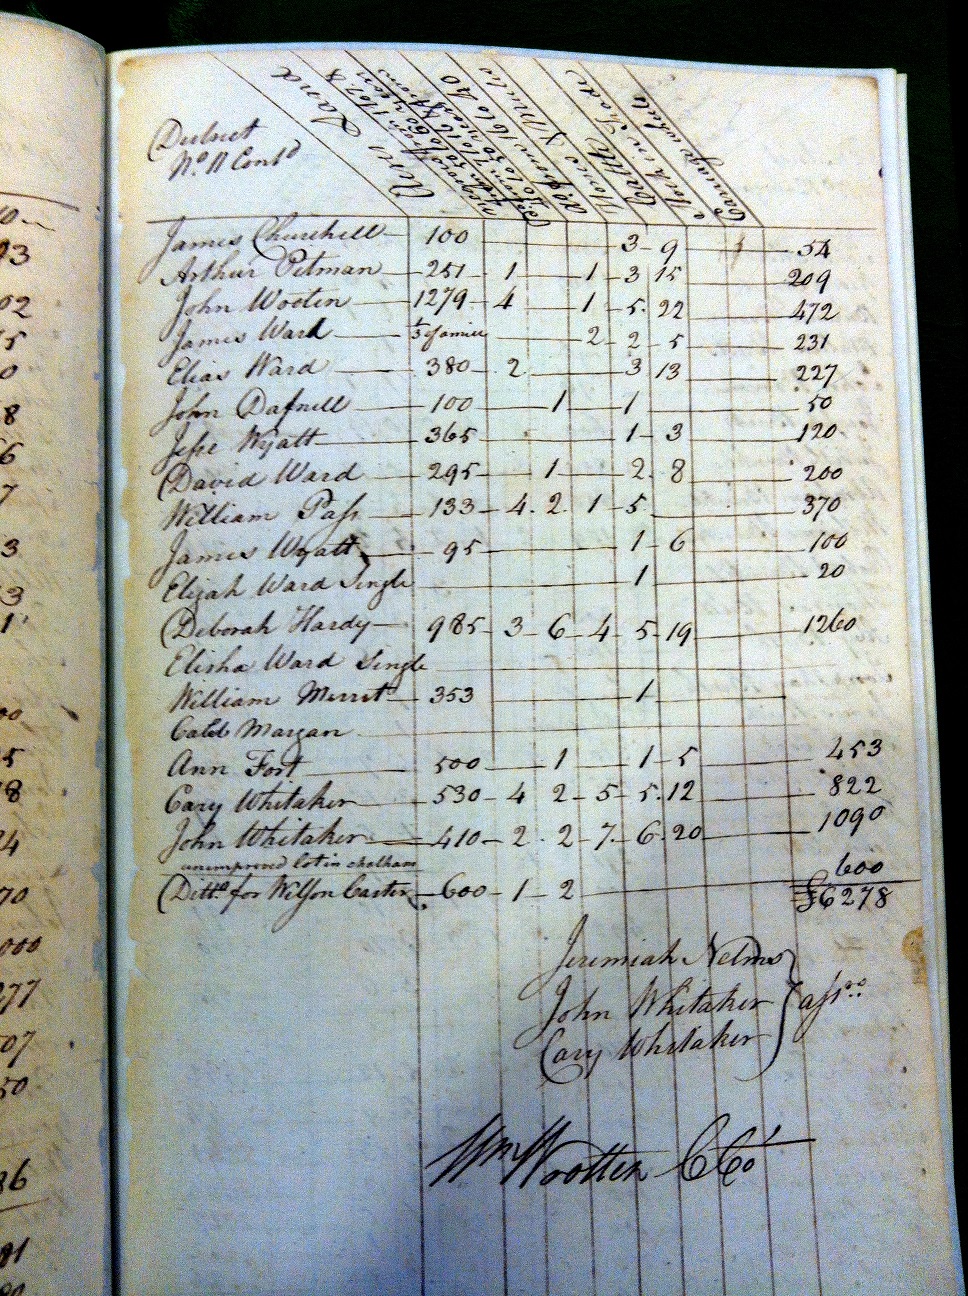 District
No. 11 Contd
Acres Land
Horses & Mules
Cattle
Stock in Trade
Carriage wheels
James Churchill 100 3 9 1 54
Arthur Pitman 251 1 1 3 15 209
John Wooten 1279 4 1 5 22 472
James Ward 2 2 5 231
Elias Ward 380 2 3 13 227
John Dafnell 100 1 1 50
Jesse Wyatt 365 1 3 120
David Ward 295 1 2 8 200
William Pass 133 4 2 1 5 370
James Wyatt 95 1 6 100
Elijah Ward Single 1 20
Deborah Hardy 985 3 6 4 5 19 1260
Elisha Ward Single
William Merret 353 1
Caleb Margan
Ann Fort 500 1 1 5 453
Cary Whitaker 530 4 2 5 5 12 822
John Whitaker 410 2 2 7 6 20 1090
unimproved lot in chatham 600
Ditto for Willson Carter 600 1 2 £6278
Jeremiah Nelms
John Whitaker } assrs
Cary Whitaker
Wm Wootten CCo